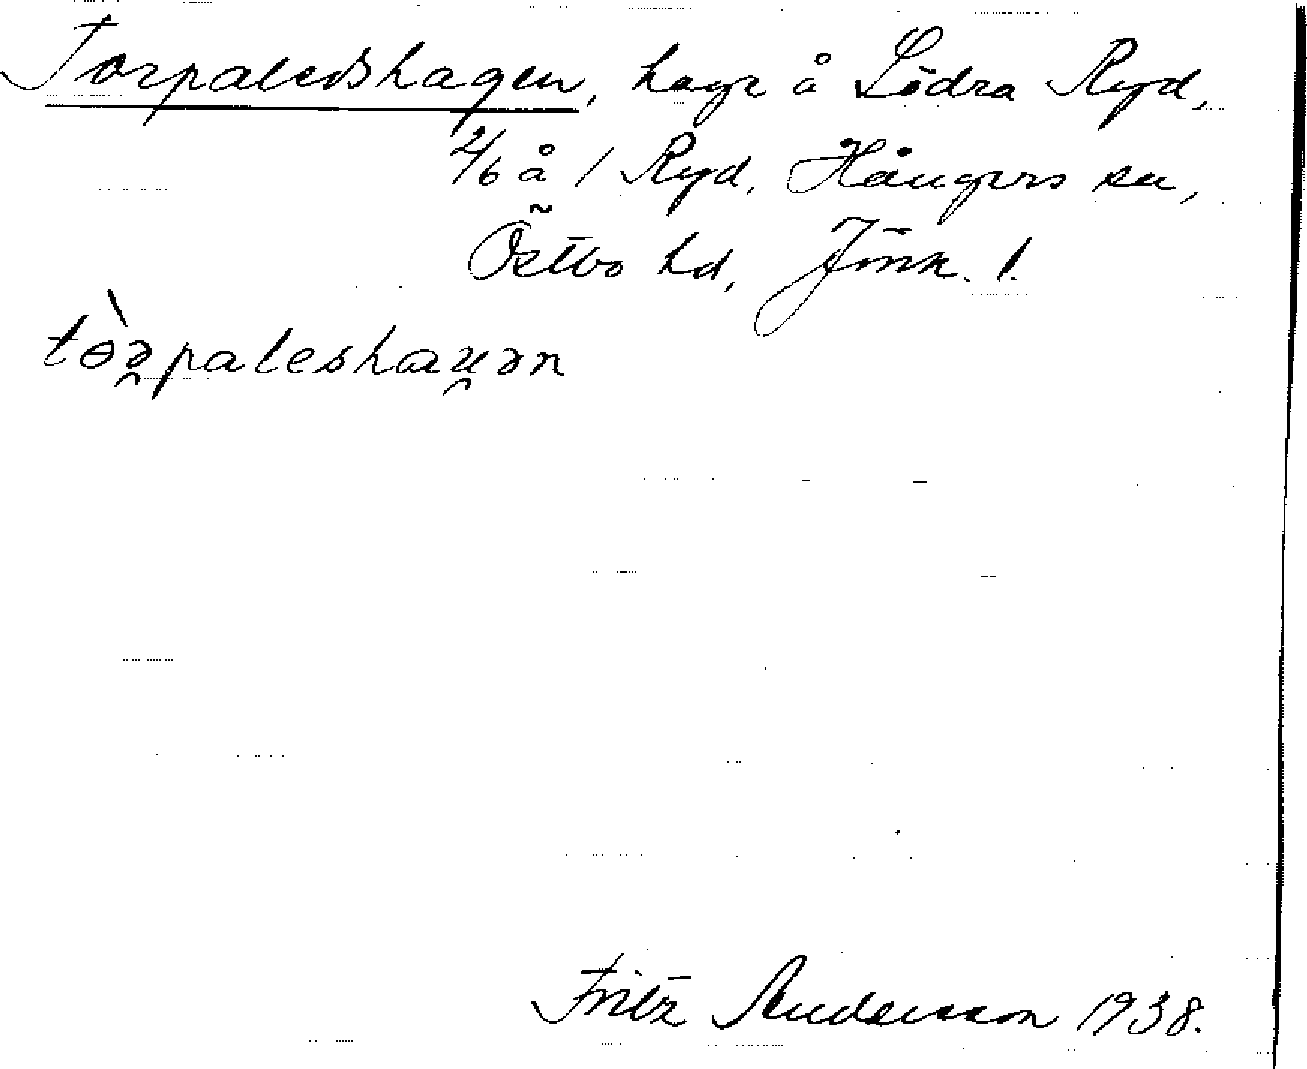 Torpaledshagen, hage å Södra Ryd,
2/6 å 1 Ryd, Hångers sn,
Östbo hd, Jönk. l.
tòrpaleshauən
Fritz Andersson 1938.